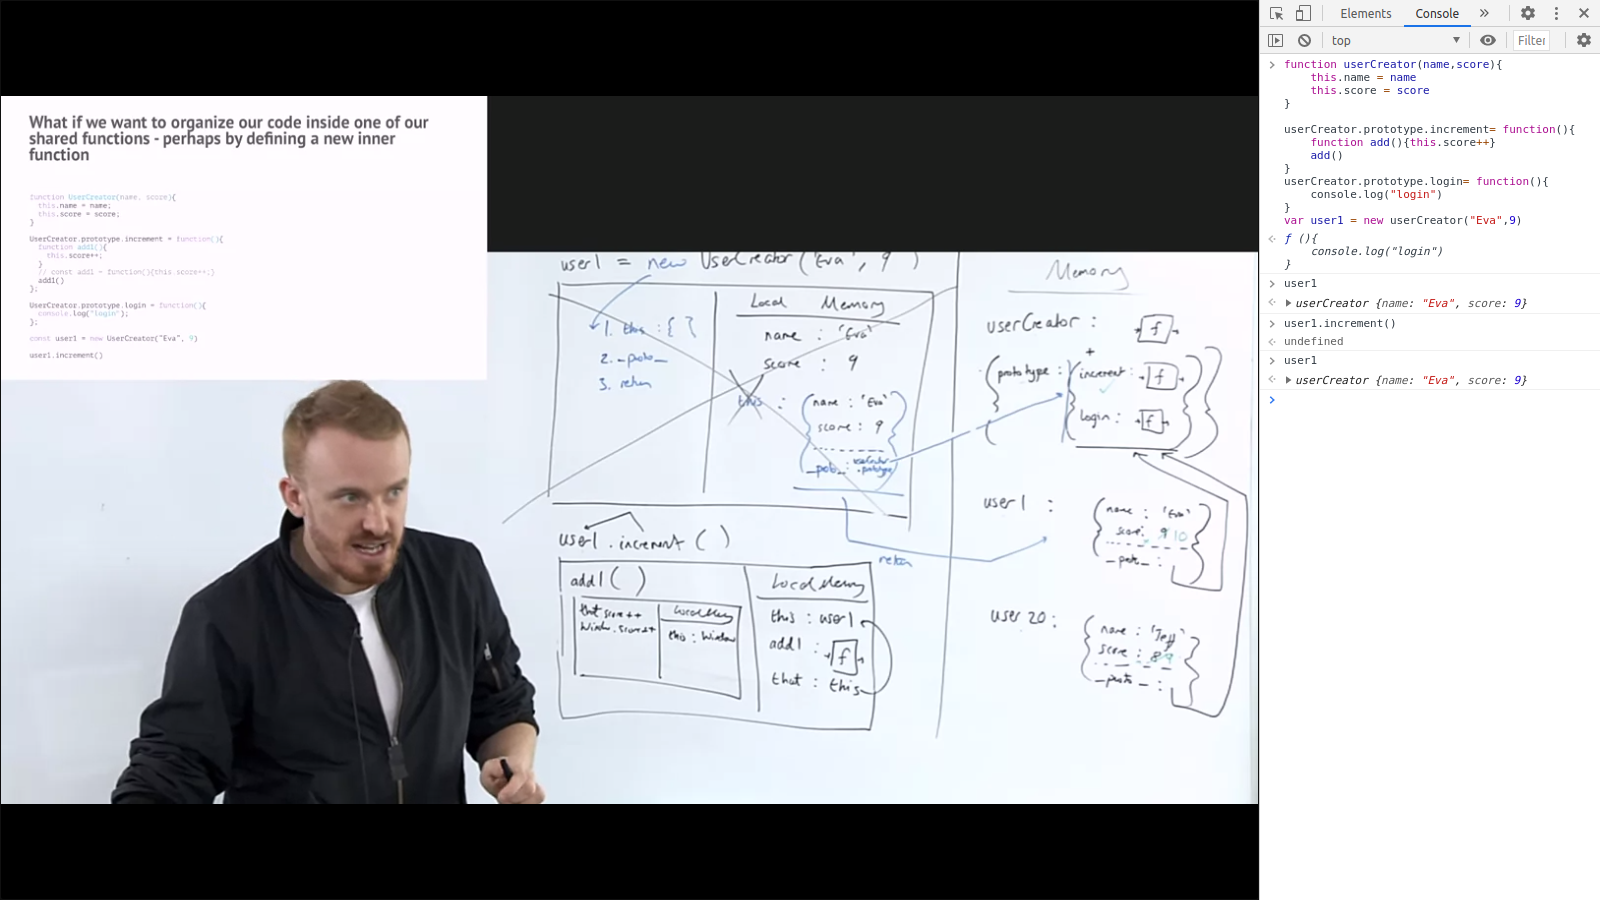 What if we want to organize our code inside one of our
shared functions - perhaps by defining a new inner
function
function UserCreator(name, score){
this.name = name;
this.score = score;
}
UserCreator.prototype.increment = function(){
function add1(){
this.score++;
}
// const add1 = function(){this.score++;}
add1()
};
UserCreator.prototype.login = function(){
console.log("login");
};
const user1 = new UserCreator("Eva", 9)
user1.increment()
user1 = new UserCreator('Eva', 9)
1. this : { }
2. __proto__
3. return
Local Memory
name : 'Eva'
score : 9
this :
{name : 'Eva'
score : 9
__proto__ : userCreator
.prototype}
return
user1.increment()
add1()
that.score++
Window.score++
Local Memory
this : Window
Local Memory
this : user1
add1 : f
that : this
Memory
userCreator : f
+
{prototype : {increment : f
login : f}}
user1 :
{name : 'Eva'
score : 9 10
__proto__ : }
user20 :
{name : 'Jeff'
score : 8 9
__proto__ : }
Elements Console »
top Filter
function userCreator(name,score){
this.name = name
this.score = score
}
userCreator.prototype.increment= function(){
function add(){this.score++}
add()
}
userCreator.prototype.login= function(){
console.log("login")
}
var user1 = new userCreator("Eva",9)
ƒ (){
console.log("login")
}
user1
userCreator {name: "Eva", score: 9}
user1.increment()
undefined
user1
userCreator {name: "Eva", score: 9}